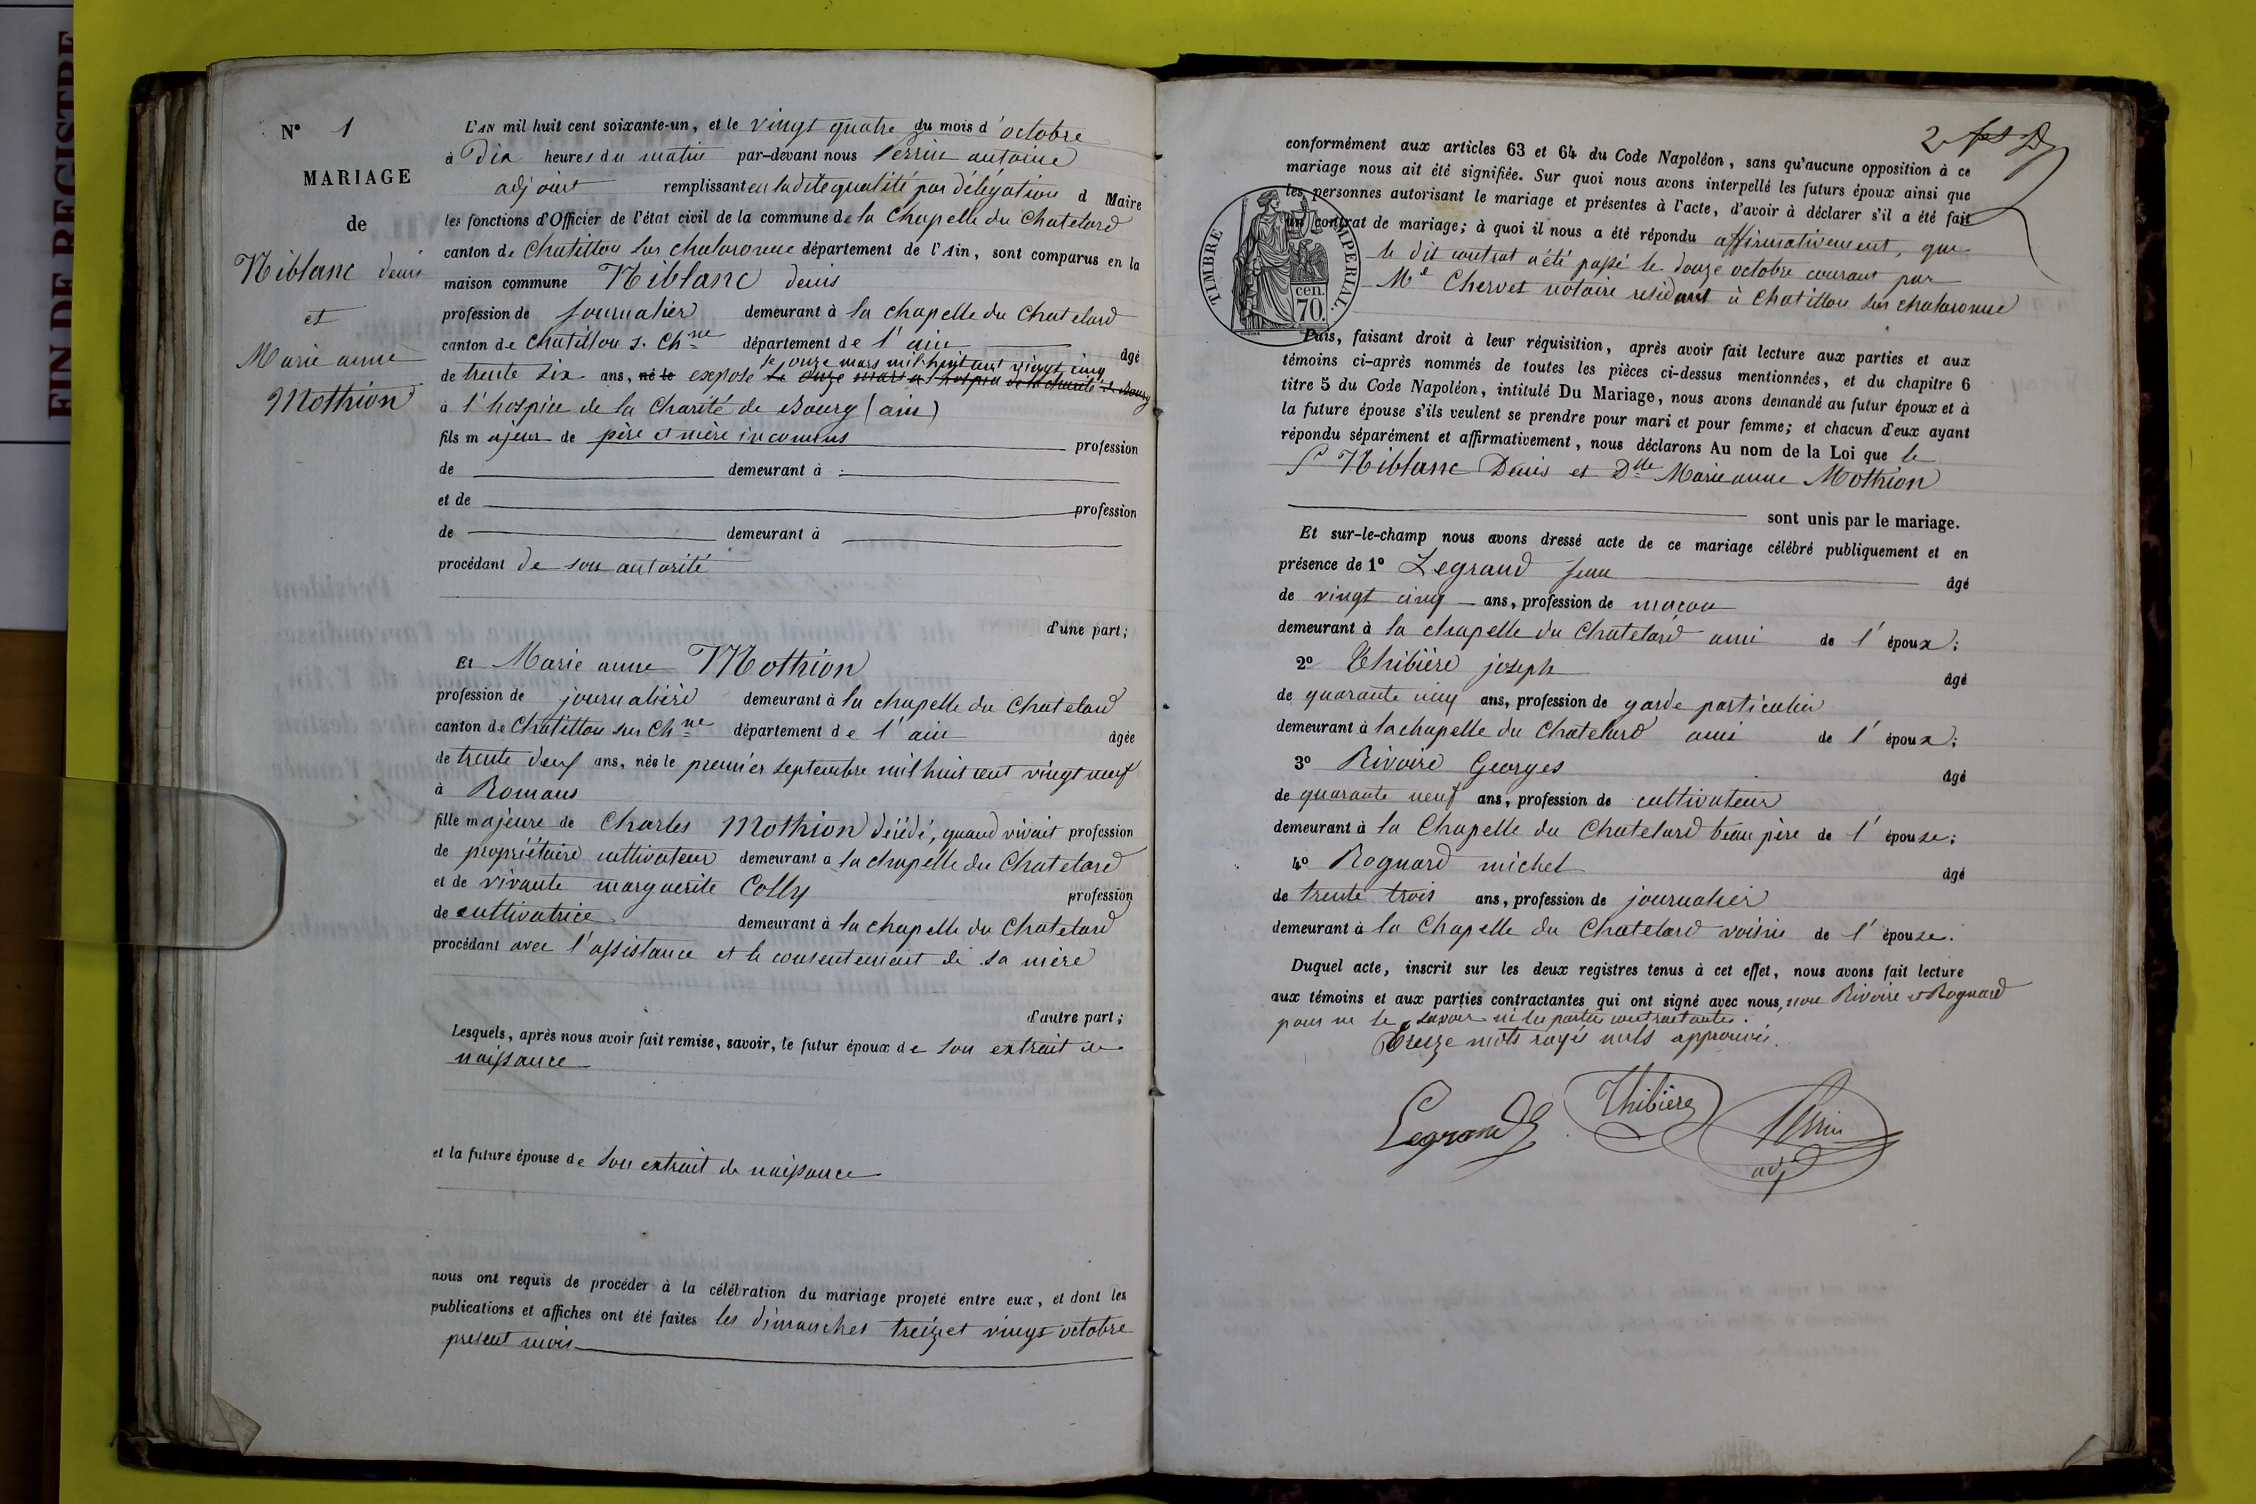 FIN DE REGISTRE
N° 1
MARIAGE
de
Niblanc denis
et
Marie anne
Mothion
L'AN mil huit cent soixante-un, et le vingt quatre du mois d'octobre
à Dix heures du matin par-devant nous Perrin antoine
adjoint remplissant en la dite qualité par délégation d Maire
les fonctions d'Officier de l'état civil de la commune de la Chapelle du Chatelard
canton de Chatillon sur chalaronne département de l'Ain, sont comparus en la
maison commune Niblanc denis
profession de journalier demeurant à la chapelle du Chatelard
canton de Chatillon s. Ch.ne département de l'ain âgé
le onze mars mil huit cent vingt cinq
de trente six ans, né le exposé le onze mars a l'hospice de la charité de Bourg
à l'hospice de la Charité de Bourg (ain)
fils majeur de père et mère inconnus profession
de demeurant à
et de profession
de demeurant à
procédant de son autorité
d'une part;
Et Marie anne Mothion
profession de journalière demeurant à la chapelle du Chatelard
canton de Chatillon sur Ch.ne département de l'ain âgée
de trente deux ans, née le premier septembre mil huit cent vingt neuf
à Romans
fille majeure de Charles Mothion décédé, quand vivait profession
de propriétaire cultivateur demeurant à la chapelle du Chatelard
et de vivante marguerite Colly profession
de cultivatrice demeurant à la chapelle du Chatelard
procédant avec l'assistance et le consentement de sa mère
d'autre part;
Lesquels, après nous avoir fait remise, savoir, le futur époux de son extrait de
naissance
et la future épouse de son extrait de naissance
nous ont requis de procéder à la célébration du mariage projeté entre eux, et dont les
publications et affiches ont été faites les dimanches treize et vingt octobre
présent mois
2
conformément aux articles 63 et 64 du Code Napoléon, sans qu'aucune opposition à ce
mariage nous ait été signifiée. Sur quoi nous avons interpellé les futurs époux ainsi que
les personnes autorisant le mariage et présentes à l'acte, d'avoir à déclarer s'il a été fait
un contrat de mariage; à quoi il nous a été répondu affirmativement, que
le dit contrat a été passé le douze octobre courant par
Me Chervet notaire résidant à Chatillon sur chalaronne
TIMBRE IMPERIAL.
70 cen.
Puis, faisant droit à leur réquisition, après avoir fait lecture aux parties et aux
témoins ci-après nommés de toutes les pièces ci-dessus mentionnées, et du chapitre 6
titre 5 du Code Napoléon, intitulé Du Mariage, nous avons demandé au futur époux et à
la future épouse s'ils veulent se prendre pour mari et pour femme; et chacun d'eux ayant
répondu séparément et affirmativement, nous déclarons Au nom de la Loi que le
Sr Niblanc Denis et Dlle Marie anne Mothion
sont unis par le mariage.
Et sur-le-champ nous avons dressé acte de ce mariage célébré publiquement et en
présence de 1° Legrand jean âgé
de vingt cinq ans, profession de maçon
demeurant à la chapelle du Chatelard ami de l'époux;
2° Thibière joseph âgé
de quarante cinq ans, profession de garde particulier
demeurant à la chapelle du Chatelard ami de l'époux;
3° Rivoire Georges âgé
de quarante neuf ans, profession de cultivateur
demeurant à la Chapelle du Chatelard beau père de l'épouse;
4° Rognard michel âgé
de trente trois ans, profession de journalier
demeurant à la Chapelle du Chatelard voisin de l'épouse.
Duquel acte, inscrit sur les deux registres tenus à cet effet, nous avons fait lecture
aux témoins et aux parties contractantes qui ont signé avec nous, non Rivoire et Rognard
pour ne le savoir ni les parties contractantes.
Treize mots rayés nuls approuvés.
Legrand Thibière Perrin
adj